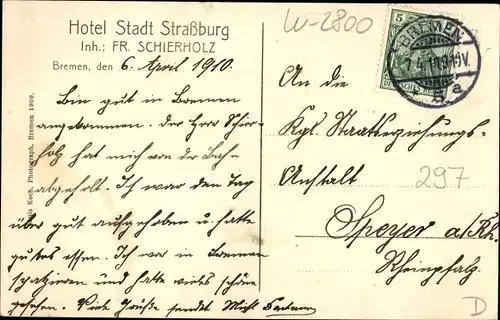 Hotel Stadt Straßburg
Inh.: FR. SCHIERHOLZ
Bremen, den 6. April 1910.
Bin gut in Bremen
angekommen. Der Herr Schier-
holz hat mich von der Bahn
abgeholt. Ich war den Tag
über gut aufgehoben u. hatte
gutes essen. Ich war in Bremen
spazieren und hatte vieles schöne
gesehen. Viele Grüße sendet
Koch, Photograph, Bremen 1909.
W-2800
5
BREMEN
5 a
An die
Kgl. Staatserziehungs-
Anstalt
297
Speyer a/Rh.
Rheinpfalz.
D